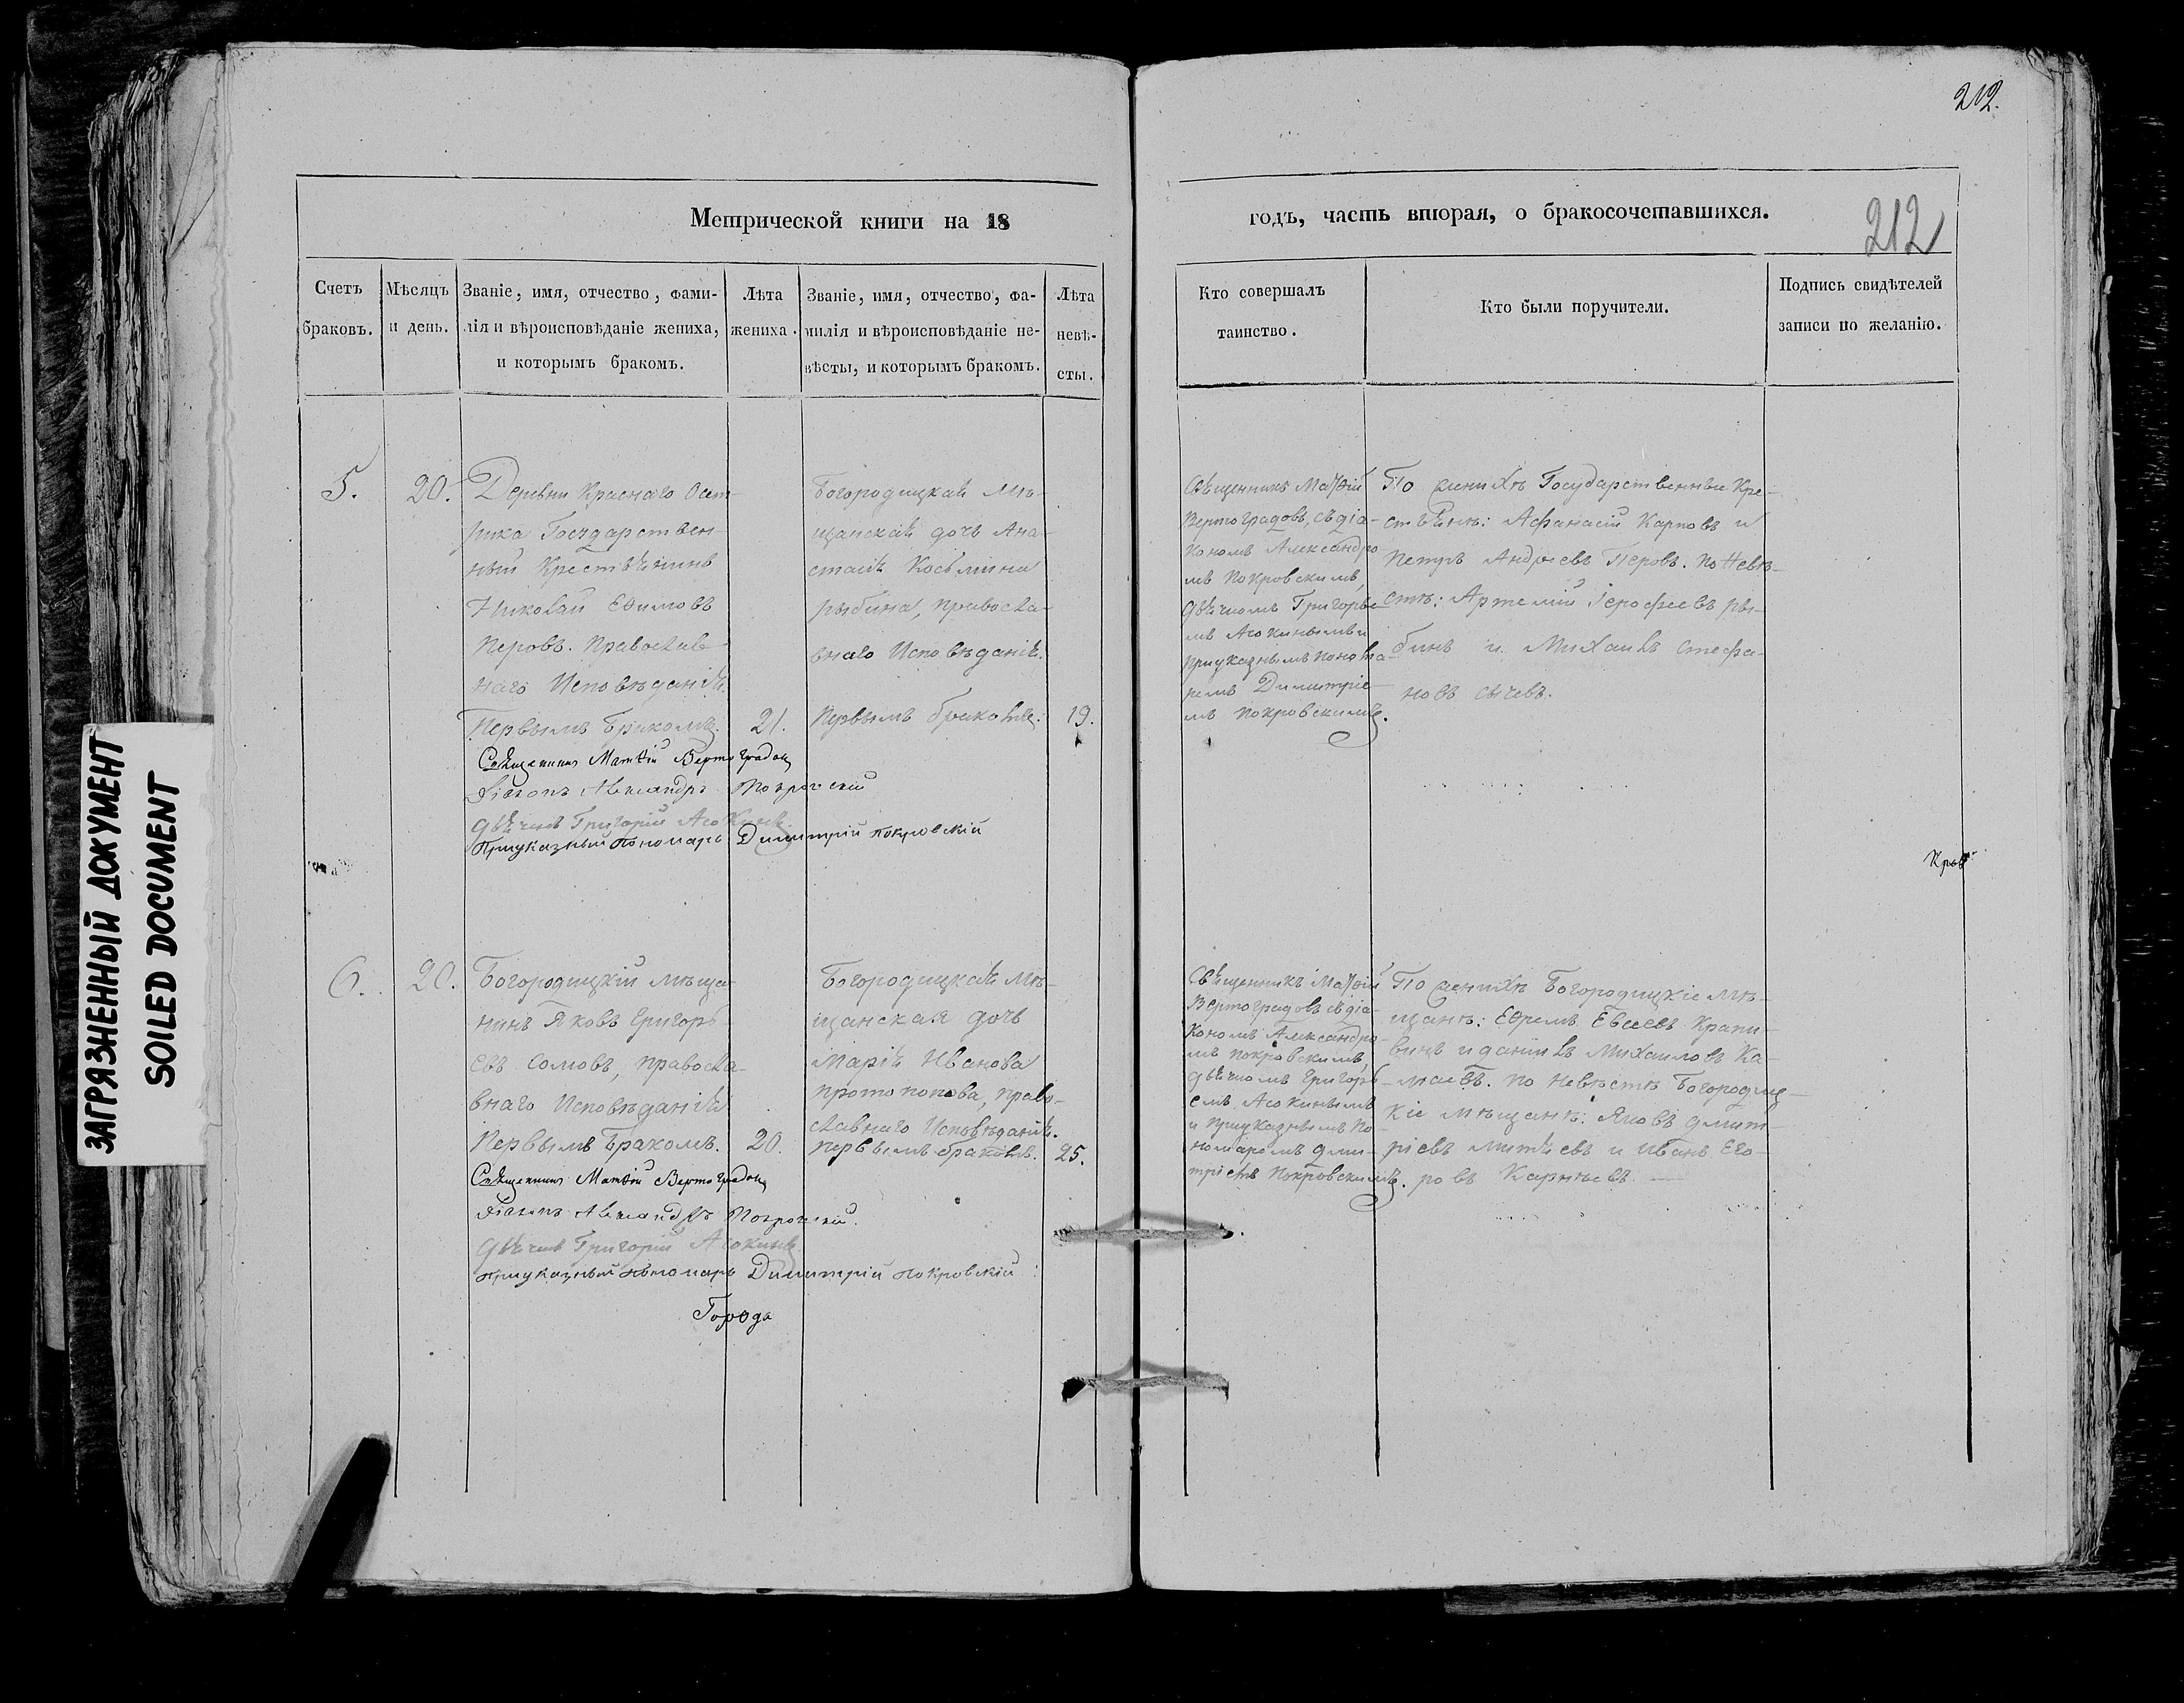 212.
212
Метрической книги на 18
годъ, часть вторая, о бракосочетавшихся.
Счетъ
браковъ.
Мѣсяцъ
и день.
Званіе, имя, отчество, фами-
лія и вѣроисповѣданіе жениха,
и которымъ бракомъ.
Лѣта
жениха.
Званіе, имя, отчество, фа-
милія и вѣроисповѣданіе не-
вѣсты, и которымъ бракомъ.
Лѣта
невѣ-
сты.
Кто совершалъ
таинство.
Кто были поручители.
Подпись свидѣтелей
записи по желанію.
5.
20.
Деревни Краснаго Осет-
рика Государствен-
ный Крестьянинъ
Николай Ефимовъ
Перовъ. Православ-
наго Исповѣданія.
Первымъ Бракомъ.
21.
Богородицкая мѣ-
щанская дочь Ана-
стасія Косьмина
рыбина, правосла-
внаго Исповѣданія.
первымъ бракомъ.
19.
Священникъ Матѳій
Вертоградовъ, съ діа-
кономъ Александро-
мъ Покровскимъ,
дьячкомъ Григорье-
мъ Асокинымъ и
приуказнымъ понома-
ремъ Димитріе-
мъ Покровскимъ.
По женихѣ Государственные Кре-
стьяне: Афанасій Карповъ и
Петръ Андреевъ Перовъ. по Невѣ-
стѣ: Артемій Іерофеевъ ры-
бинъ и Михаилъ Стефа-
новъ сычевъ.
Священникъ Матѳій Вертоградовъ
Діаконъ Александръ Покровскій
дьячекъ Григорій Асокинъ.
Приуказный Пономарь Димитрій покровскій
6.
20.
Богородицкій мѣща-
нинъ Яковъ Григорь-
евъ Сомовъ, правосла-
внаго Исповѣданія
Первымъ Бракомъ.
20.
Богородицкая мѣ-
щанская дочь
Марія Иванова
протопопова, право-
славнаго Исповѣданія.
первымъ бракомъ.
25.
Священникъ Матѳій
Вертоградовъ съ діа-
кономъ Александро-
мъ покровскимъ,
дьячкомъ Григорь-
емъ Асокинымъ
и приуказнымъ по-
номаремъ дми-
тріемъ Покровскимъ.
По женихѣ Богородицкіе мѣ-
щане: Ефремъ Евсеевъ Крапи-
винъ и даніилъ Михаиловъ Ка-
маевъ. по невѣстѣ Богородиц-
кіе мѣщане: Яковъ дмит-
ріевъ митяевъ и Иванъ Его-
ровъ Карнѣевъ.
Священникъ Матѳій Вертоградовъ
Діаконъ Александръ Покровскій.
дьячекъ Григорій Асокинъ
приуказный пономарь Димитрій покровскій
Города
ЗАГРЯЗНЕННЫЙ ДОКУМЕНТ
SOILED DOCUMENT